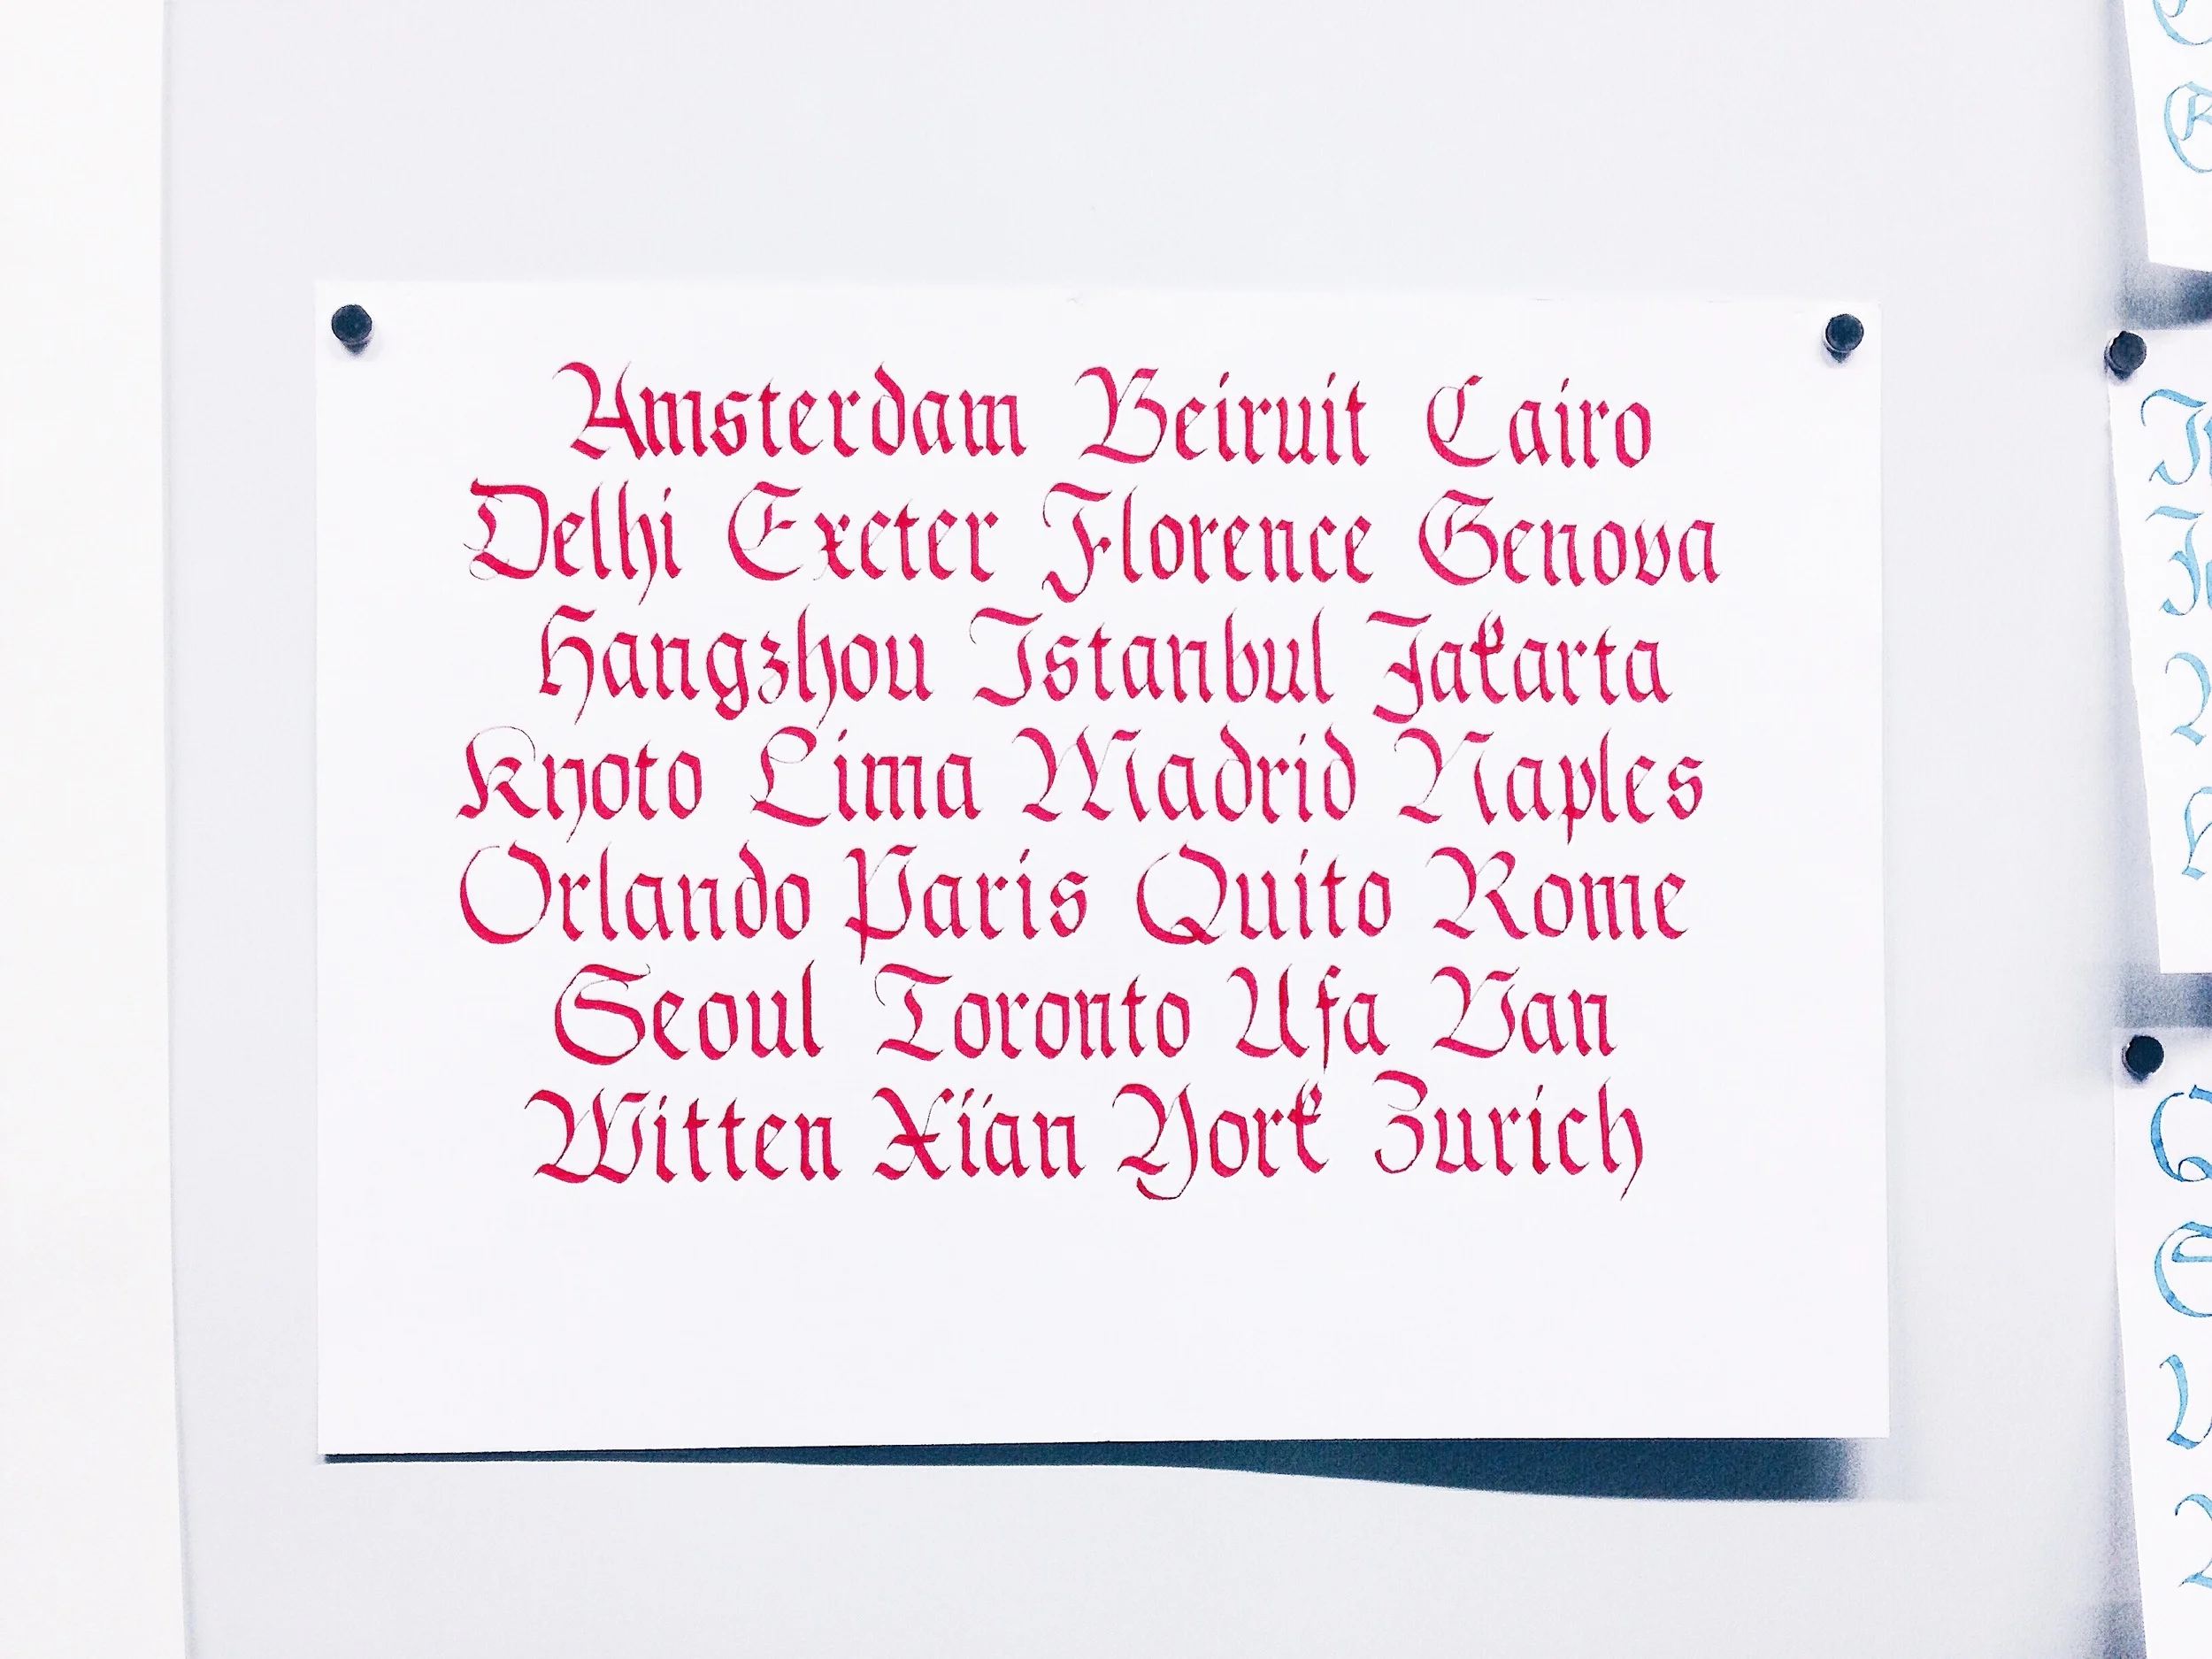 Amsterdam Beiruit Cairo
Delhi Exeter Florence Genova
Hangzhou Istanbul Jakarta
Kyoto Lima Madrid Naples
Orlando Paris Quito Rome
Seoul Toronto Ufa Van
Witten Xi'an York Zurich